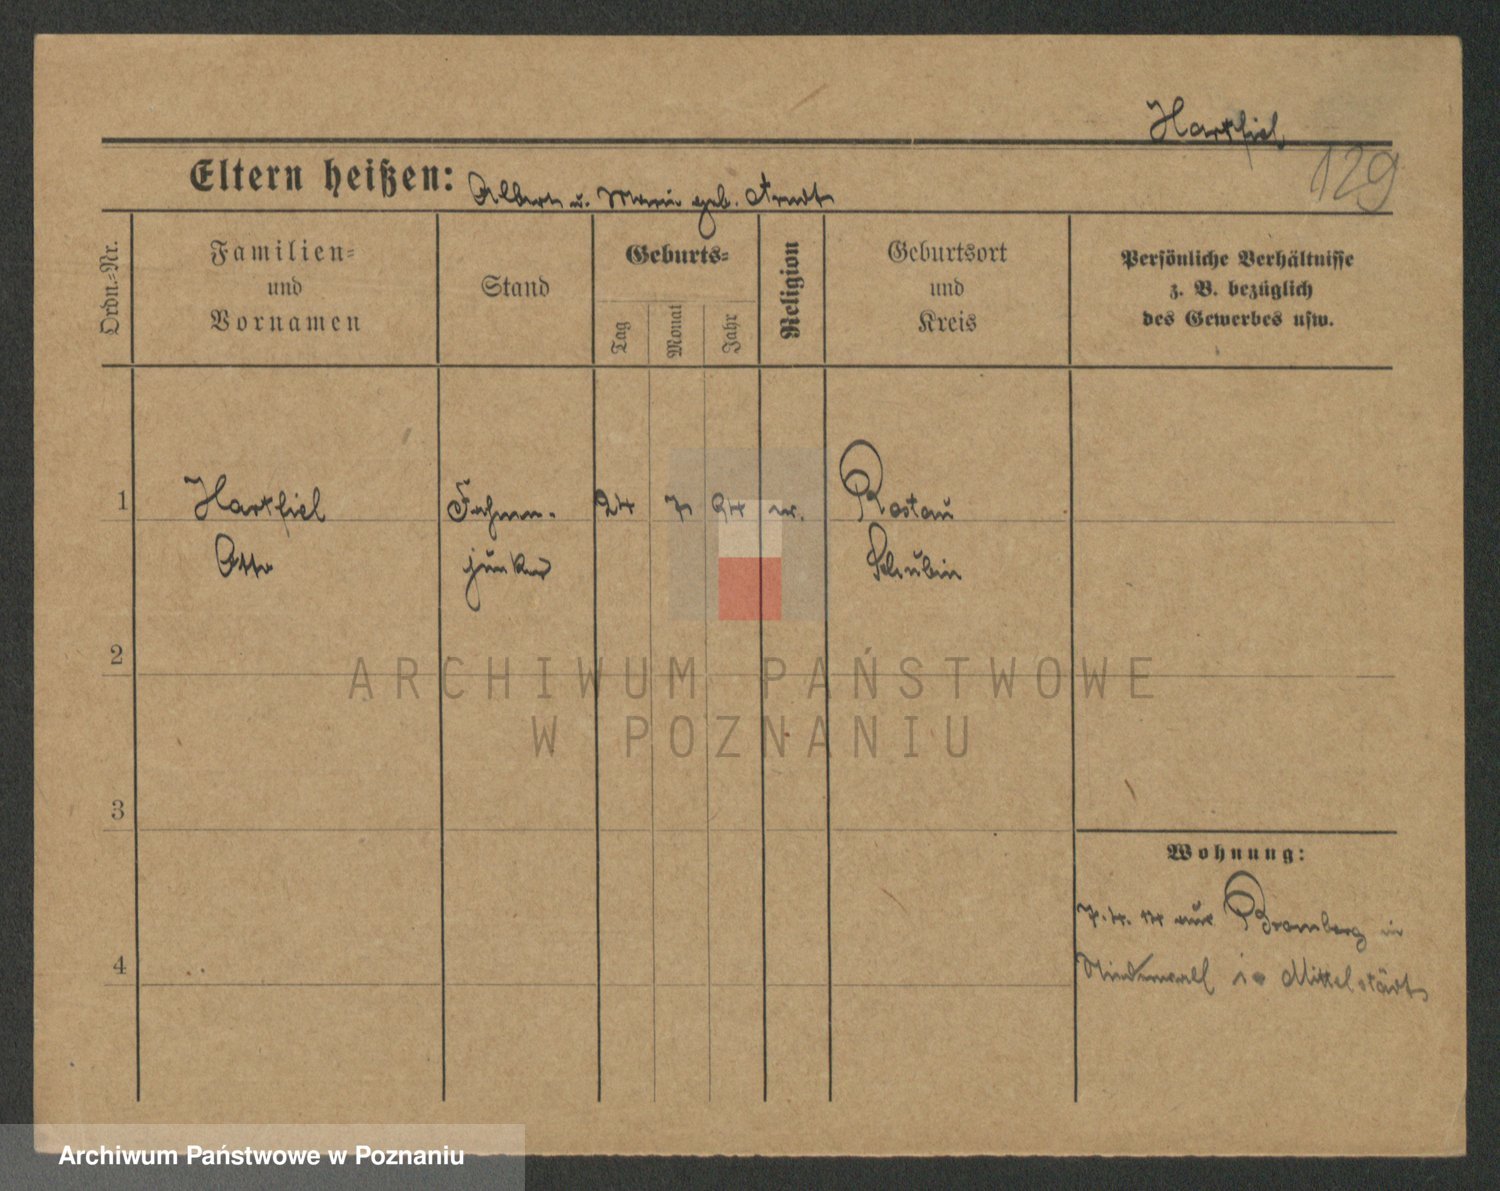 Hartfiel
129
Eltern heißen: Albert u. Marie geb. Arndt
Ordn.-Nr.
Familien-
und
Vornamen
Stand
Geburts-
Tag
Monat
Jahr
Religion
Geburtsort
und
Kreis
Persönliche Verhältnisse
z. B. bezüglich
des Gewerbes usw.
1
Hartfiel
Otto
Fahnen-
junker
24 7 94
Rostau
Schubin
2
3
4
Wohnung:
aus Bromberg in
Mittelstädt
ARCHIWUM PAŃSTWOWE
W POZNANIU
Archiwum Państwowe w Poznaniu